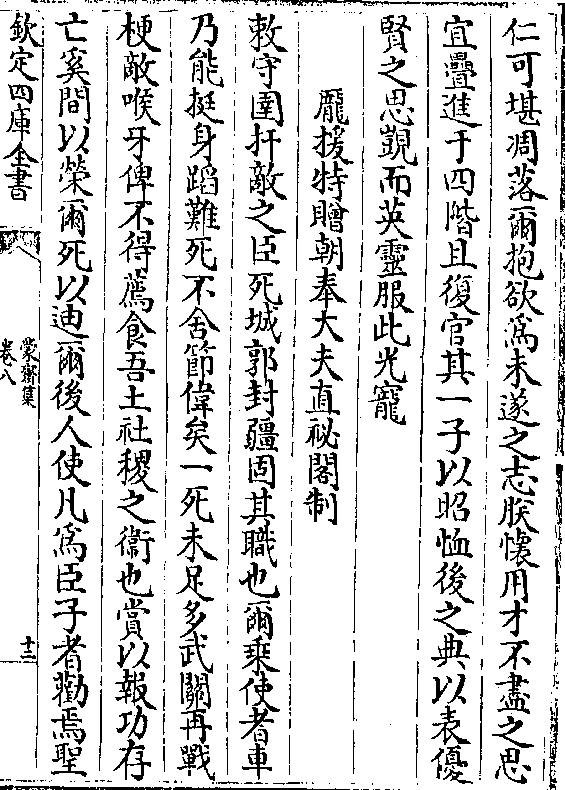 仁可堪凋落爾抱欲為未遂之志朕懷用才不盡之思
宜疊進于四階且復官其一子以昭恤後之典以表優
賢之思覬而英靈服此光寵
龎援特贈朝奉大夫直祕閣制
敕守圉扞敵之臣死城郭封疆固其職也爾乗使者車
乃能挺身蹈難死不舍節偉矣一死未足多武關再戰
梗敵喉牙俾不得薦食吾土社稷之衞也賞以報功存
亡奚間以榮爾死以迪爾後人使凡為臣子者勸焉聖
欽定四庫全書
蒙齋集
卷八
十三